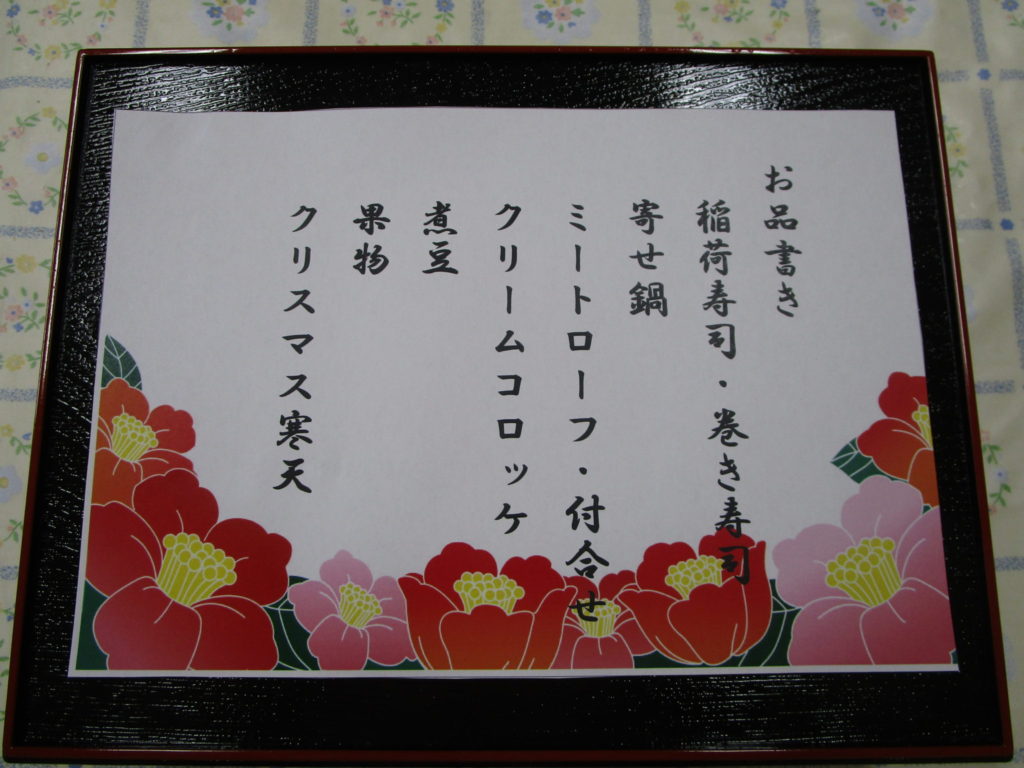 お品書き
稲荷寿司・巻き寿司
寄せ鍋
ミートローフ・付合せ
クリームコロッケ
煮豆
果物
クリスマス寒天